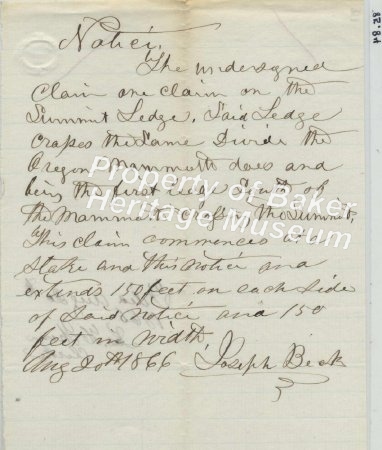 82.84
Notice.
The undersigned
Claim one claim on the
Summit Ledge. Said Ledge
Crosses the Same Divide the
Oregon Mammoth does and
being the first Ledge South of
the Mammoth Crossing the Summit.
This claim commences at a
Stake and this Notice and
extends 150 feet on each side
of Said Notice and 150
feet in width
Aug 20th 1866 Joseph Beck
Property of Baker
Heritage Museum